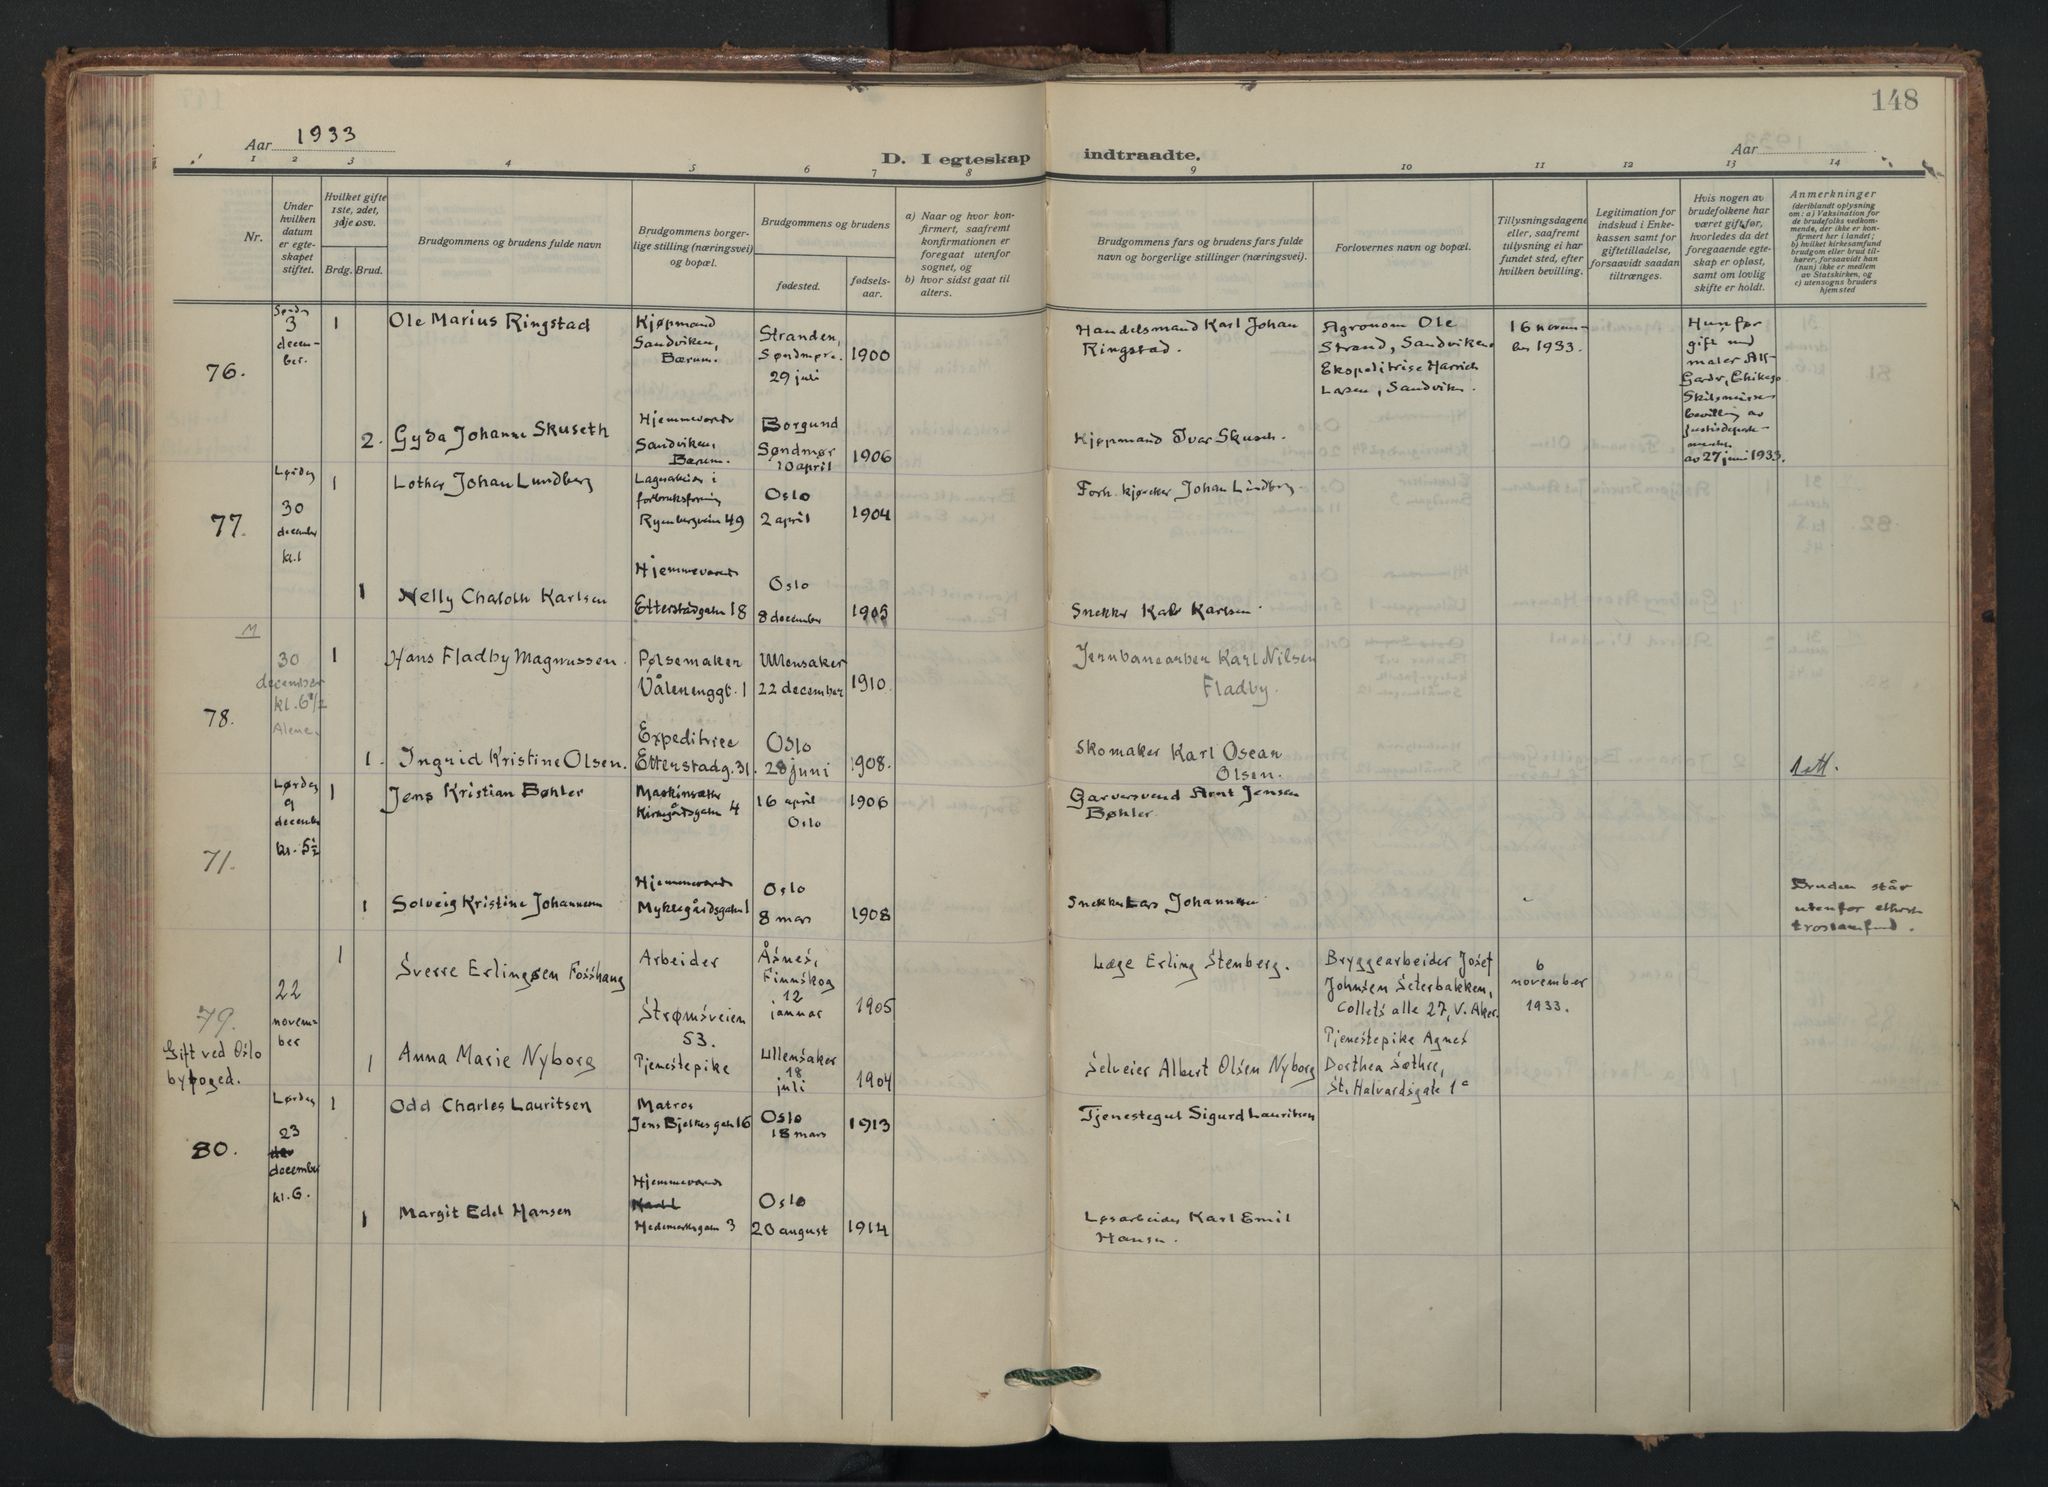 148
Aar 1933
D. I egteskap indtraadte.
Aar
1 2 3 4 5 6 7 8 9 10 11 12 13 14
Nr.
Under
hvilken
datum
er egte-
skapet
stiftet.
Hvilket gifte
1ste, 2det,
3dje osv.
Brdg. Brud.
Brudgommens og brudens fulde navn
Brudgommens borger-
lige stilling (næringsvei)
og bopæl.
Brudgommens og brudens
fødested.
fødsels-
aar.
a) Naar og hvor kon-
firmert, saafremt
konfirmationen er
foregaat utenfor
sognet, og
b) hvor sidst gaat til
alters.
Brudgommens fars og brudens fars fulde
navn og borgerlige stillinger (næringsvei).
Forlovernes navn og bopæl.
Tillysningsdagene
eller, saafremt
tillysning ei har
fundet sted, efter
hvilken bevilling.
Legitimation for
indskud i Enke-
kassen samt for
giftetilladelse,
forsaavidt saadan
tiltrænges.
Hvis nogen av
brudefolkene har
været gift før,
hvorledes da det
foregaaende egte-
skap er opløst,
samt om lovlig
skifte er holdt.
Anmerkninger
(deriblandt oplysning
om: a) Vaksination for
de brudefolks vedkom-
mende, der ikke er kon-
firmert her i landet;
b) hvilket kirkesamfund
brudgom eller brud til-
hører, forsaavidt han
(hun) ikke er medlem
av Statskirken, og
c) utensogns bruders
hjemsted
76.
3
decem-
ber.
1
Ole Marius Ringstad
Kjøpmand
Sandviken,
Bærum.
Stranden,
Søndmøre.
29 juli
1900
Handelsmand Karl Johan
Ringstad.
Agronom Ole
Strand, Sandviken.
Ekspeditrise
Larsen, Sandviken.
16 novem-
ber 1933.
Hun før
gift med
maler
Skilsmisse
bevilling av
av 27 juni 1933.
2.
Gyda Johanne Skuseth
Hjemmeværende
Sandviken,
Bærum.
Borgund
Søndmør
10 april
1906
Kjøpmand Ivar Skuseth.
77.
Lørdag
30
december
kl. 1
1
Lother Johan Lundberg
Lagerarbeider i
Rynbergveien 49
Oslo
2 april
1904
Forh. kjører Johan Lundberg.
1
Nelly Chaloth Karlsen
Hjemmeværende
Etterstadgaten 18
Oslo
8 december
1905
Snekker Karl Karlsen.
78.
M
30
december
kl. 6 1/2
Alene.
1
Hans Fladby Magnussen.
Pølsemaker
Vålerenggt. 1
Ullensaker
22 december
1910.
Jernbanearbeider Karl Nilsen
Fladby.
1.
Ingrid Kristine Olsen.
Expeditrice
Etterstadg. 31.
Oslo
28 juni
1908.
Skomaker Karl Oscar
Olsen.
71.
Lørdag
9
december
kl. 5 1/2
1
Jens Kristian Bøhler
Maskinsætter
Kirkegårdsgaten 4
16 april
Oslo
1906
Garversvend Arnt Jensen
Bøhler
1
Solveig Kristine Johannesen
Hjemmeværende
Myklegårdsgaten 1
Oslo
8 mars
1908
Snekker Lars Johannesen
Bruden står
utenfor ethvert
trossamfund.
79.
Gift ved Oslo
byfoged.
22
novem-
ber
1
Sverre Erlingsen Fosshaug
Arbeider
Strømsveien
53.
Åsnes,
Finnskog
12
januar
1905
Læge Erling Stenberg.
Bryggearbeider Josef
Johnsen Seterbakken,
Collets alle 27, V. Aker.
6
november
1933.
1
Anna Marie Nyborg
Tjenestepike
Ullensaker
18
juli
1904
Selveier Albert Olsen Nyborg
Tjenestepike Agnes
Dorthea Sæthre,
St. Halvardsgate 1c
80.
Lørdag
23
december
kl. 6.
1
Odd Charles Lauritsen
Matros
Jens Bjelkes gaten 16
Oslo
18 mars
1913
Tjenestegut Sigurd Lauritsen
1
Margit Edel Hansen
Hjemmeværende
Hedemarksgaten 3
Oslo
20 august
1914
Løsarbeider Karl Emil
Hansen.